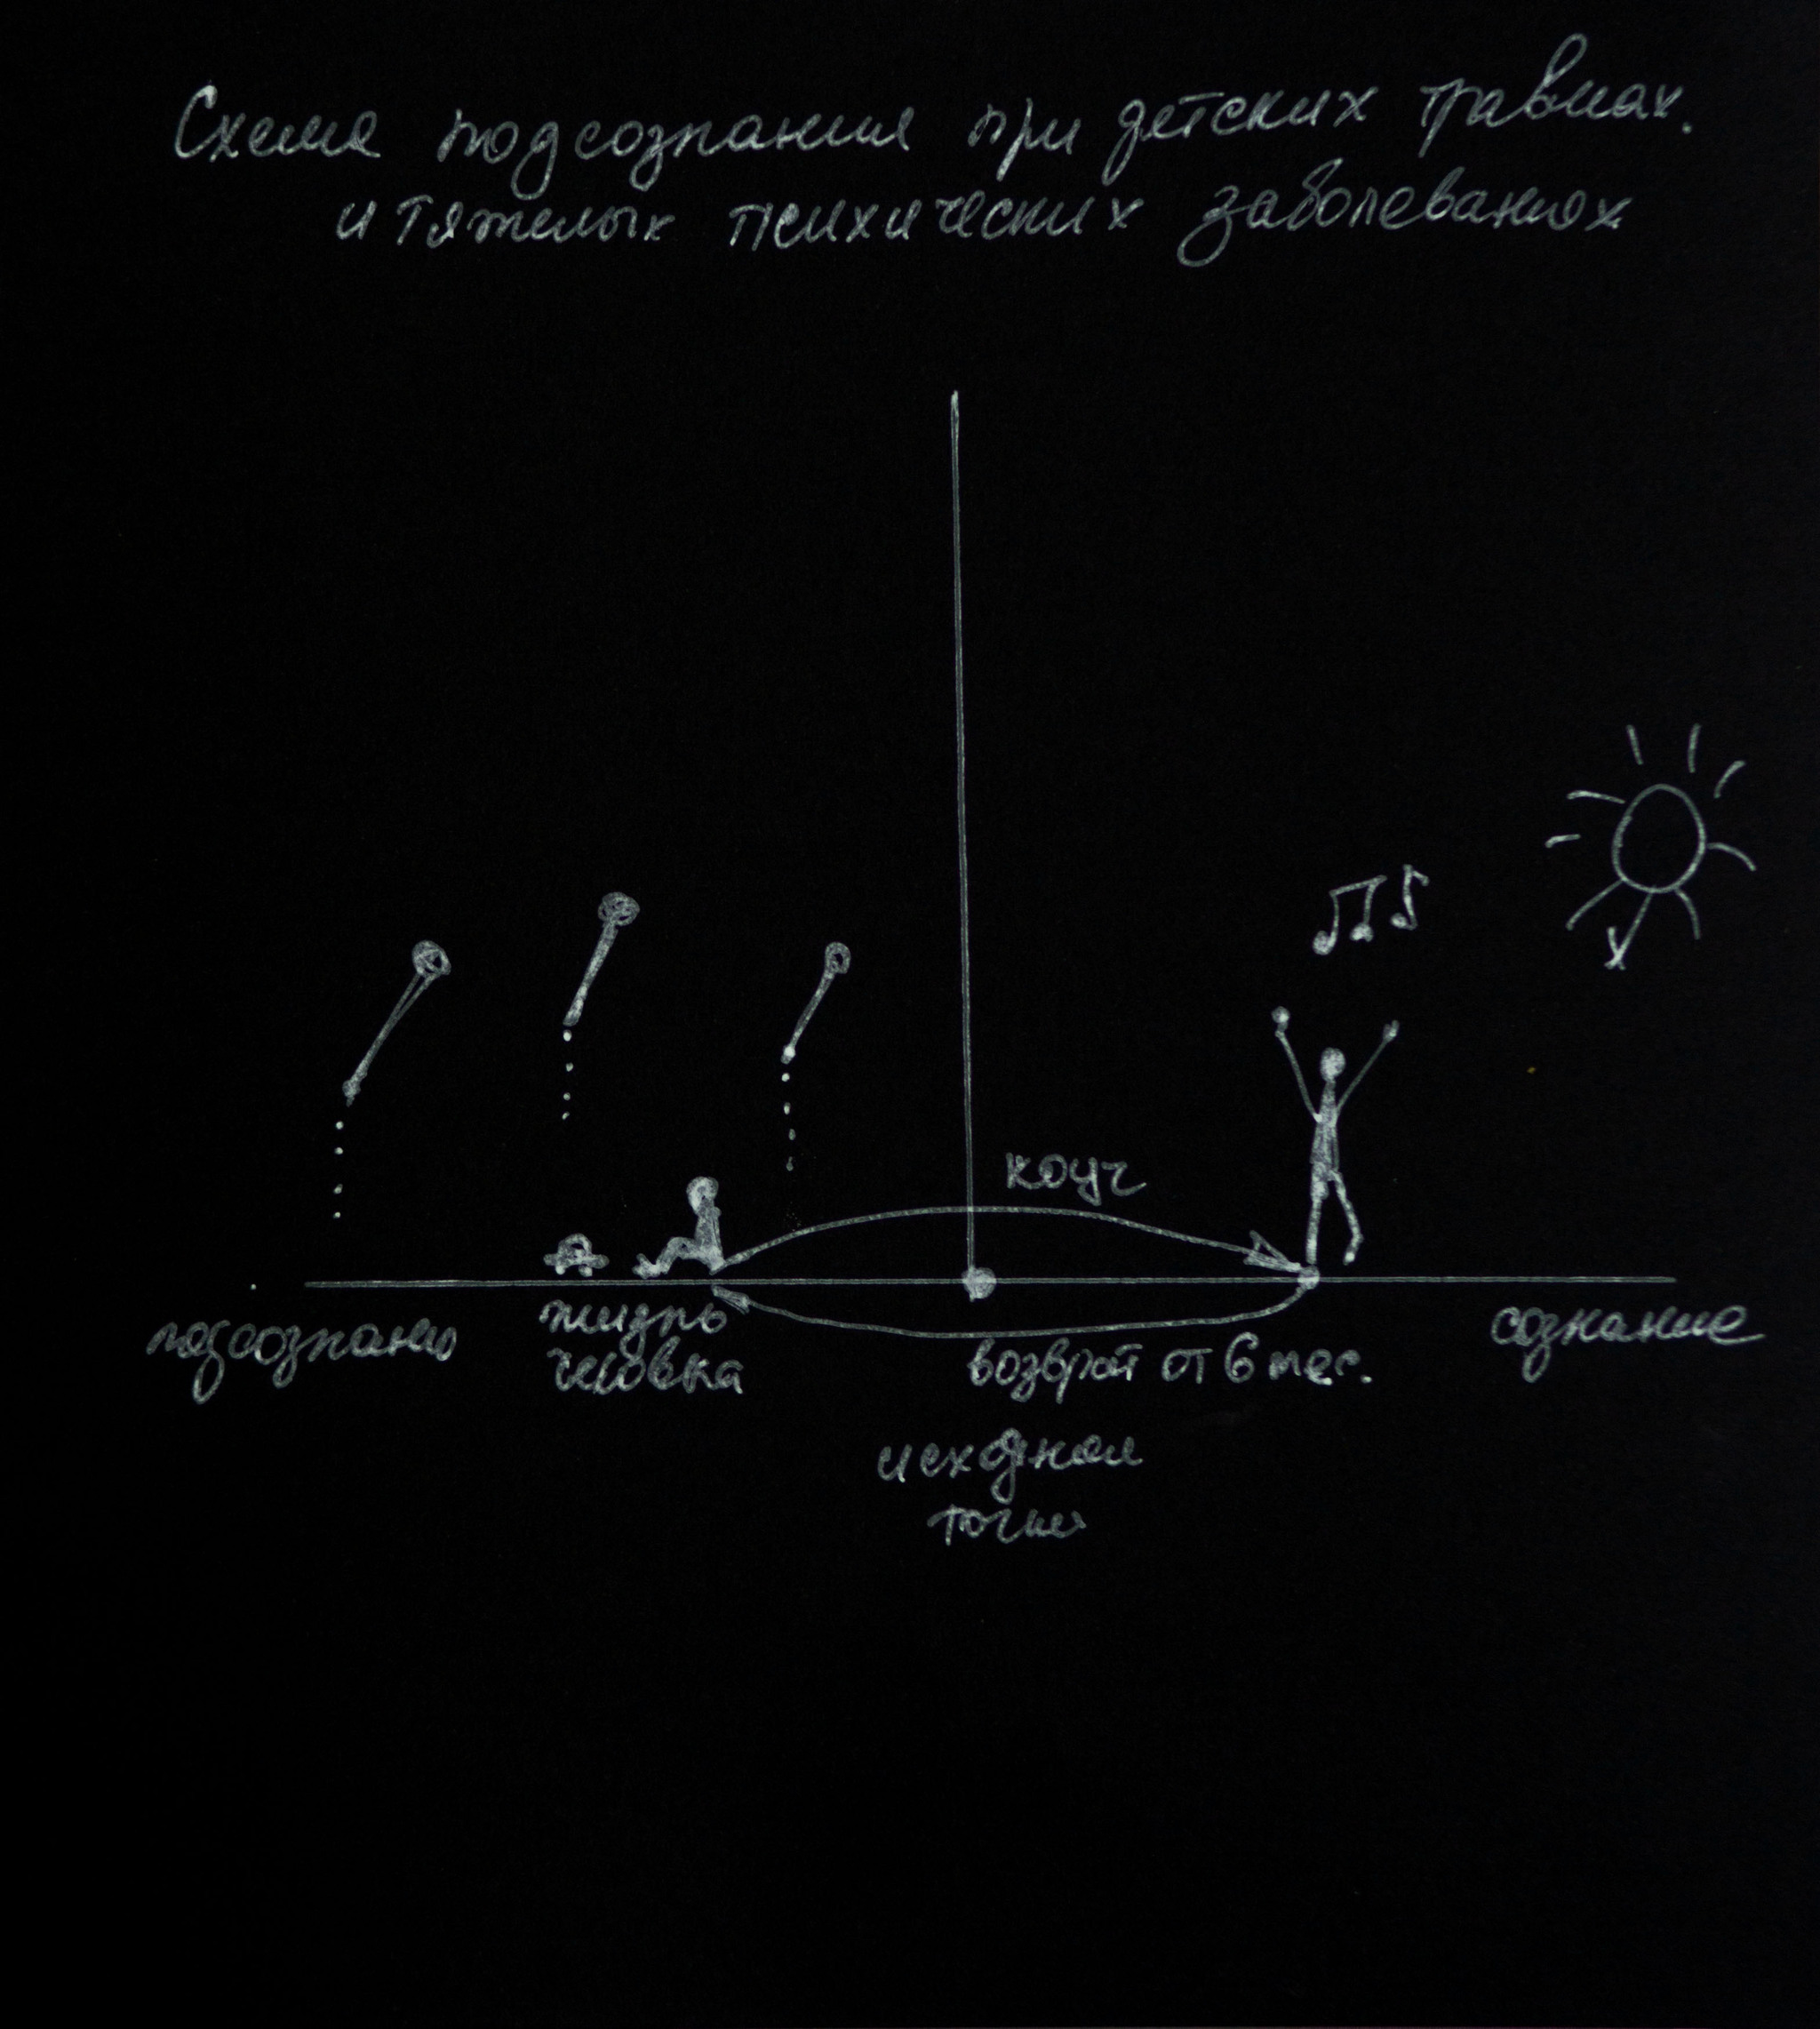 Схема подсознания при детских травмах.
и тяжелых психических заболеваниях
коуч
подсознание
жизнь
человека
возврат от 6 мес.
сознание
исходная
точка